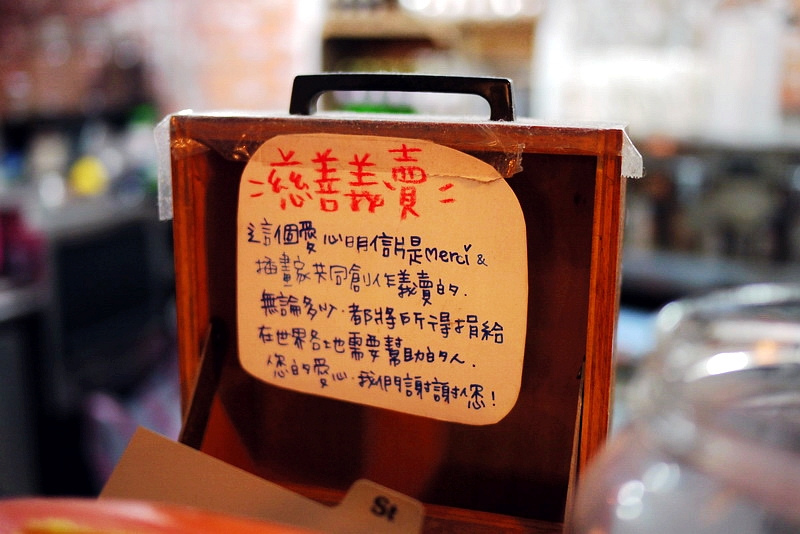 慈善義賣
這個愛心明信片是Merci &
插畫家共同創作義賣的.
無論多少.都將所得捐給
在世界各地需要幫助的人.
您的愛心.我們謝謝您!
St